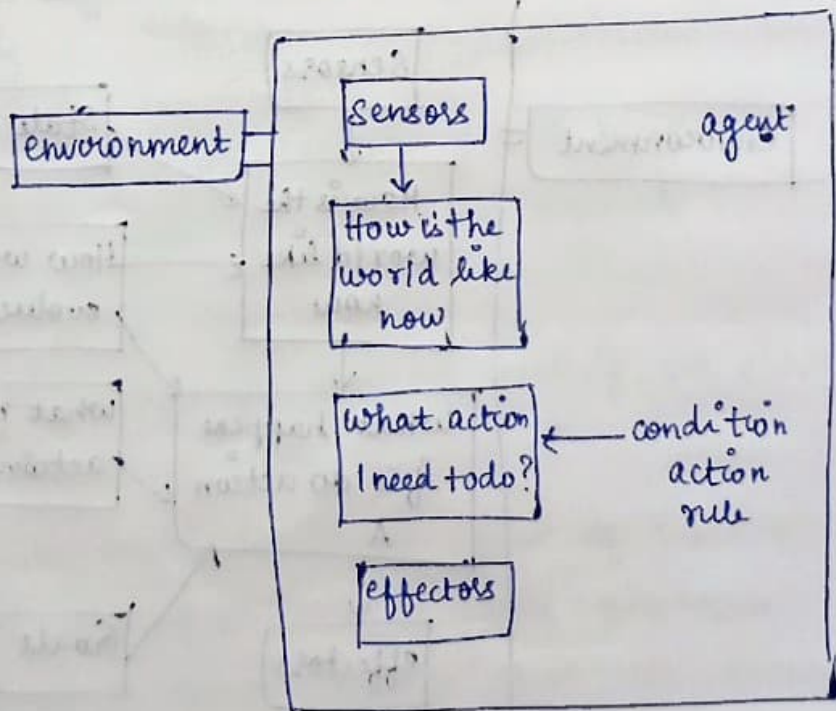 environment
sensors
agent
How is the
world like
now
what action
I need to do?
condition
action
rule
effectors